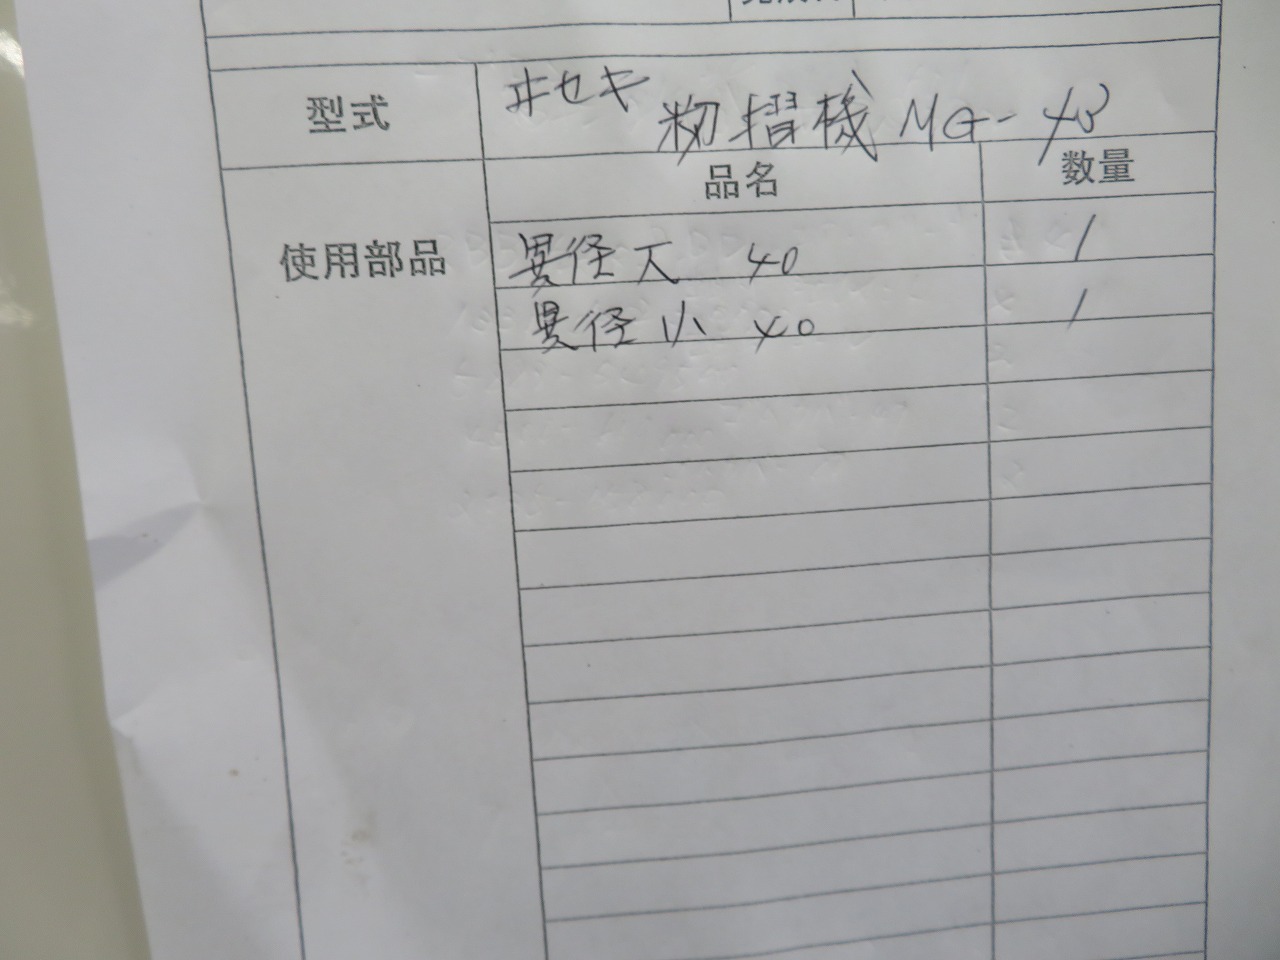 型式
ヰセキ
籾摺機 MG-43
品名 数量
使用部品
異径大 40 1
異径小 40 1